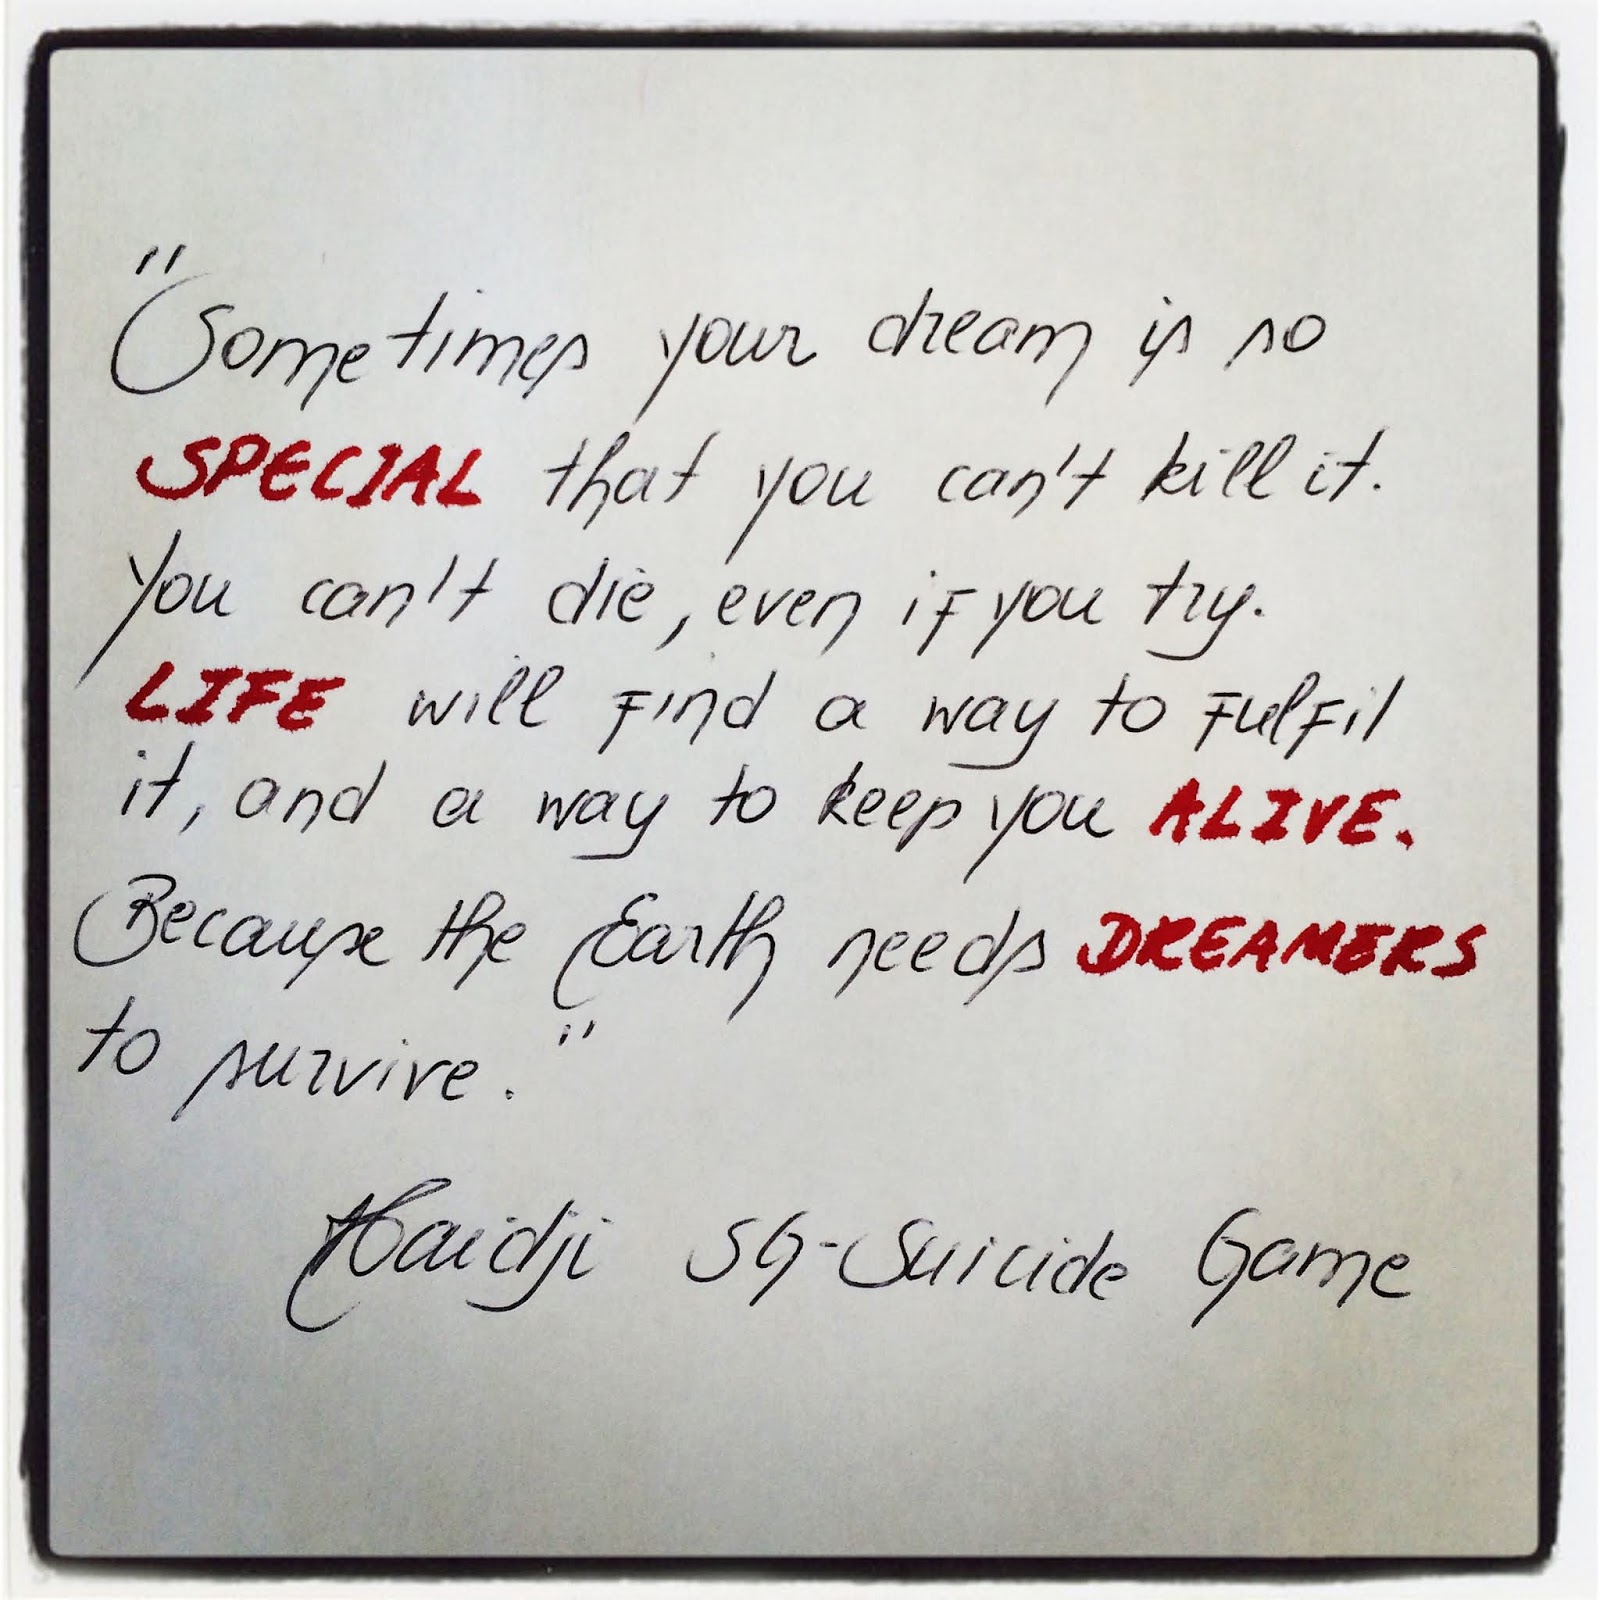 "Sometimes your dream is so
SPECIAL that you can't kill it.
You can't die, even if you try.
LIFE will find a way to fulfil
it, and a way to keep you ALIVE.
Because the Earth needs DREAMERS
to survive."
Haidji SG-Suicide Game